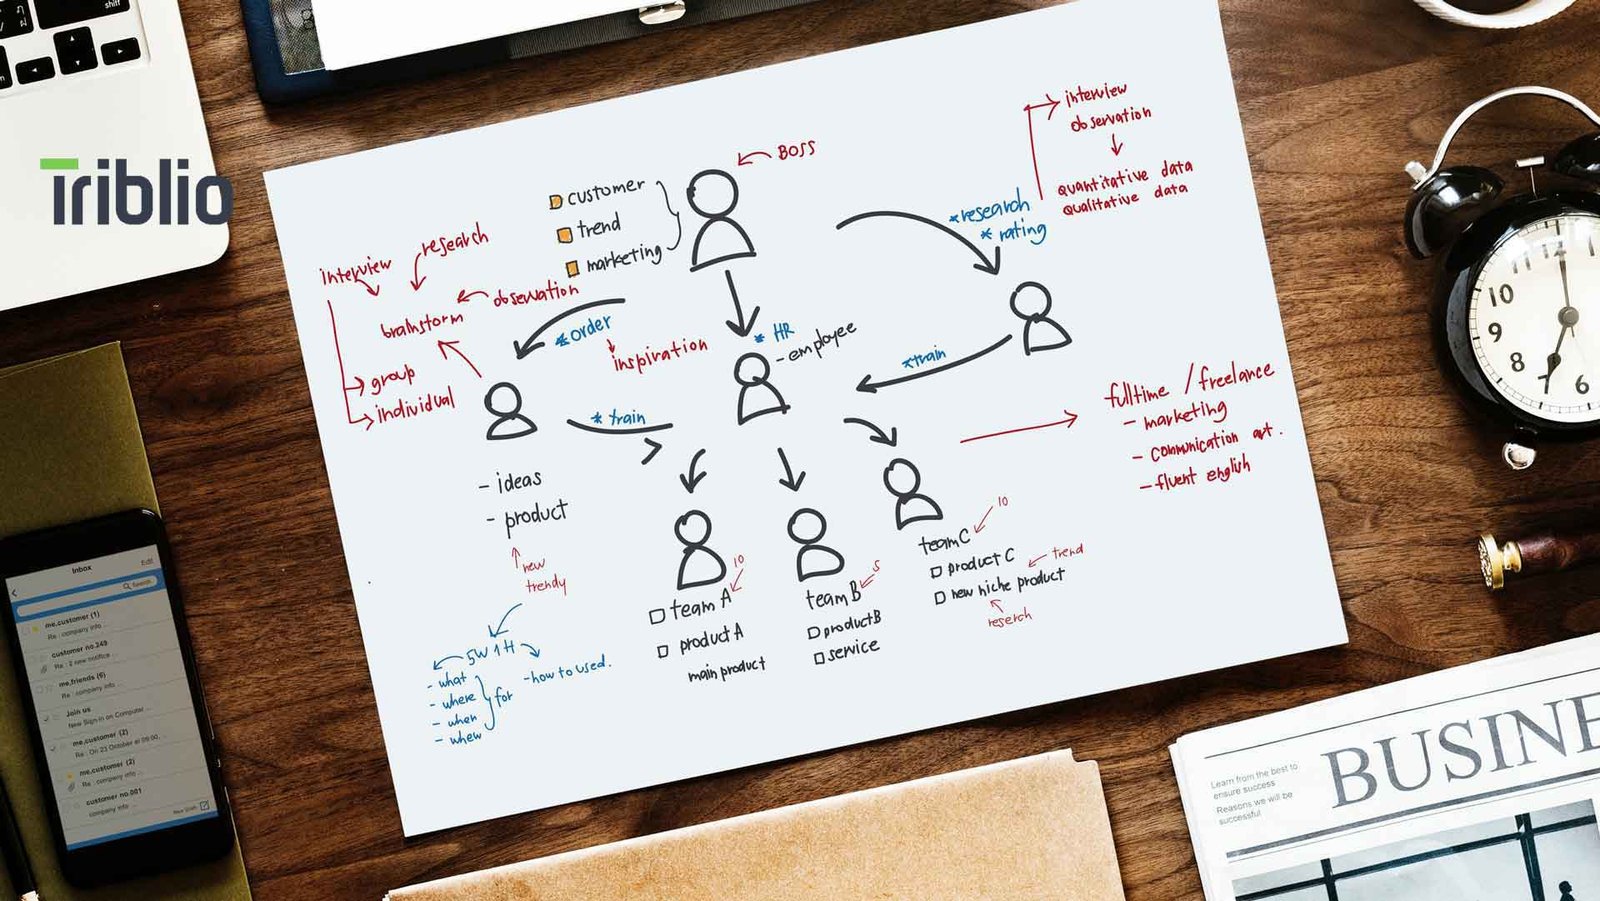 shift
Triblio
BOSS
customer
trend
marketing
interview
observation
quantitative data
qualitative data
*research
* rating
research
interview
observation
brainstorm
group
individual
*order
inspiration
* HR
- employee
*train
* train
fulltime / freelance
- marketing
- communication art.
- fluent english
- ideas
- product
new
trendy
5W 1H
- what
- where
- when
- whew
for
- how to used.
10
team A
product A
main product
5
team B
product B
service
10
team C
product C
trend
new niche product
reserch
10
9
8
7
6
5
11
12
1
Inbox
Edit
Search
me,customer (1)
Re : company info ...
customer no.249
Re : 2 new notifice ...
me,friends (6)
Re : company info
Join us
New Sign-in on Computer ...
me,customer (2)
Re : On 23 October at 09:00, ...
me,customer (2)
Re : company info ...
customer no.001
company info ...
BUSINE
Learn from the best to
ensure success
Reasons we will be
successful